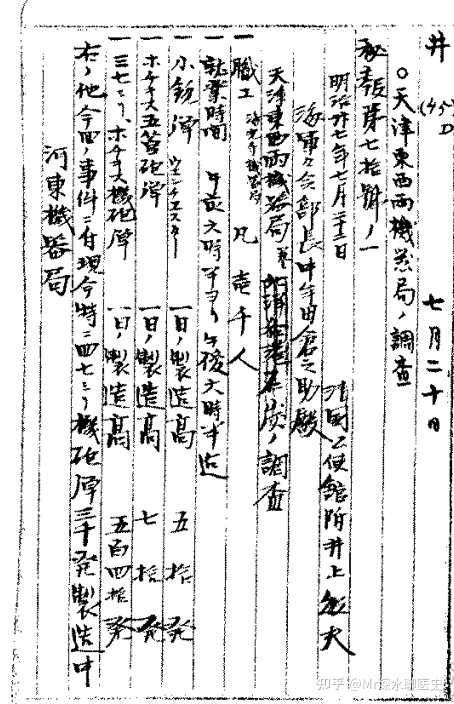 井 (45) D 七月二十日
○天津東西両機器局ノ調査
第七拾号ノ一
明治廿七年七月二十二日
清国公使館附井上敏夫
海軍々令部長中牟田倉之助殿
天津東西両機器局 調査
一職工 海光寺機器局 凡壱千人
一就業時間 午前六時半ヨリ午後六時半迄
一小銃弾 ウィンチェスター 一日ノ製造高 五拾発
一ホチキス五筒砲弾 一日ノ製造高 七拾発
一三七ミリホチキス機砲弾 一日ノ製造高 五百四拾発
右ノ他今回ノ事件ニ付現今特ニ四七ミリ機砲弾三千発製造中
河東機器局
知乎 @Mr